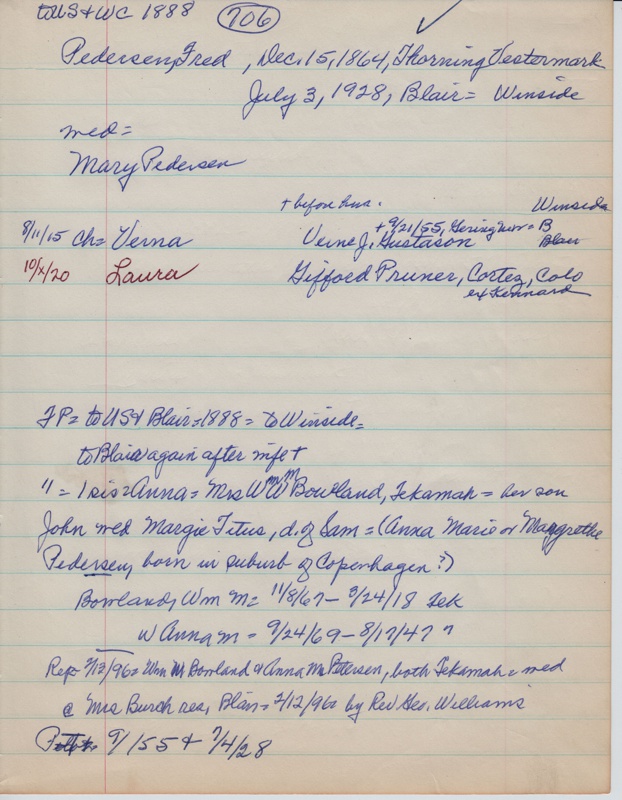 to US & WC 1888 706
Pedersen, Fred, Dec. 15, 1864, Thorning Vestermark
July 3, 1928, Blair = Winside
wed =
Mary Pedersen
+ before hus. Winside
+ 9/21/55, Gering = B
8/11/15 Ch = Verna Verne J. Gustason Blair
10/x/20 Laura Gifford Pruner, Cortez, Colo
ex Kennard
FP = to US & Blair = 1888 = to Winside =
to Blair again after wife +
" = 1 sis = Anna = Mrs Wm M Bowland, Tekamah = her son
John wed Margie Titus, d. of Sam = (Anna Marie or Margrethe
Pedersen, born in suburb of Copenhagen?)
Bowland, Wm M = 11/8/67 - 3/24/18 Tek
w Anna M = 9/24/69 - 8/17/47 "
Rep = 2/13/96 = Wm M Bowland & Anna M Petersen, both Tekamah = wed
@ Mrs Burch res, Blair = 2/12/96 by Rev Geo. Williams
9/155 & 7/4/28